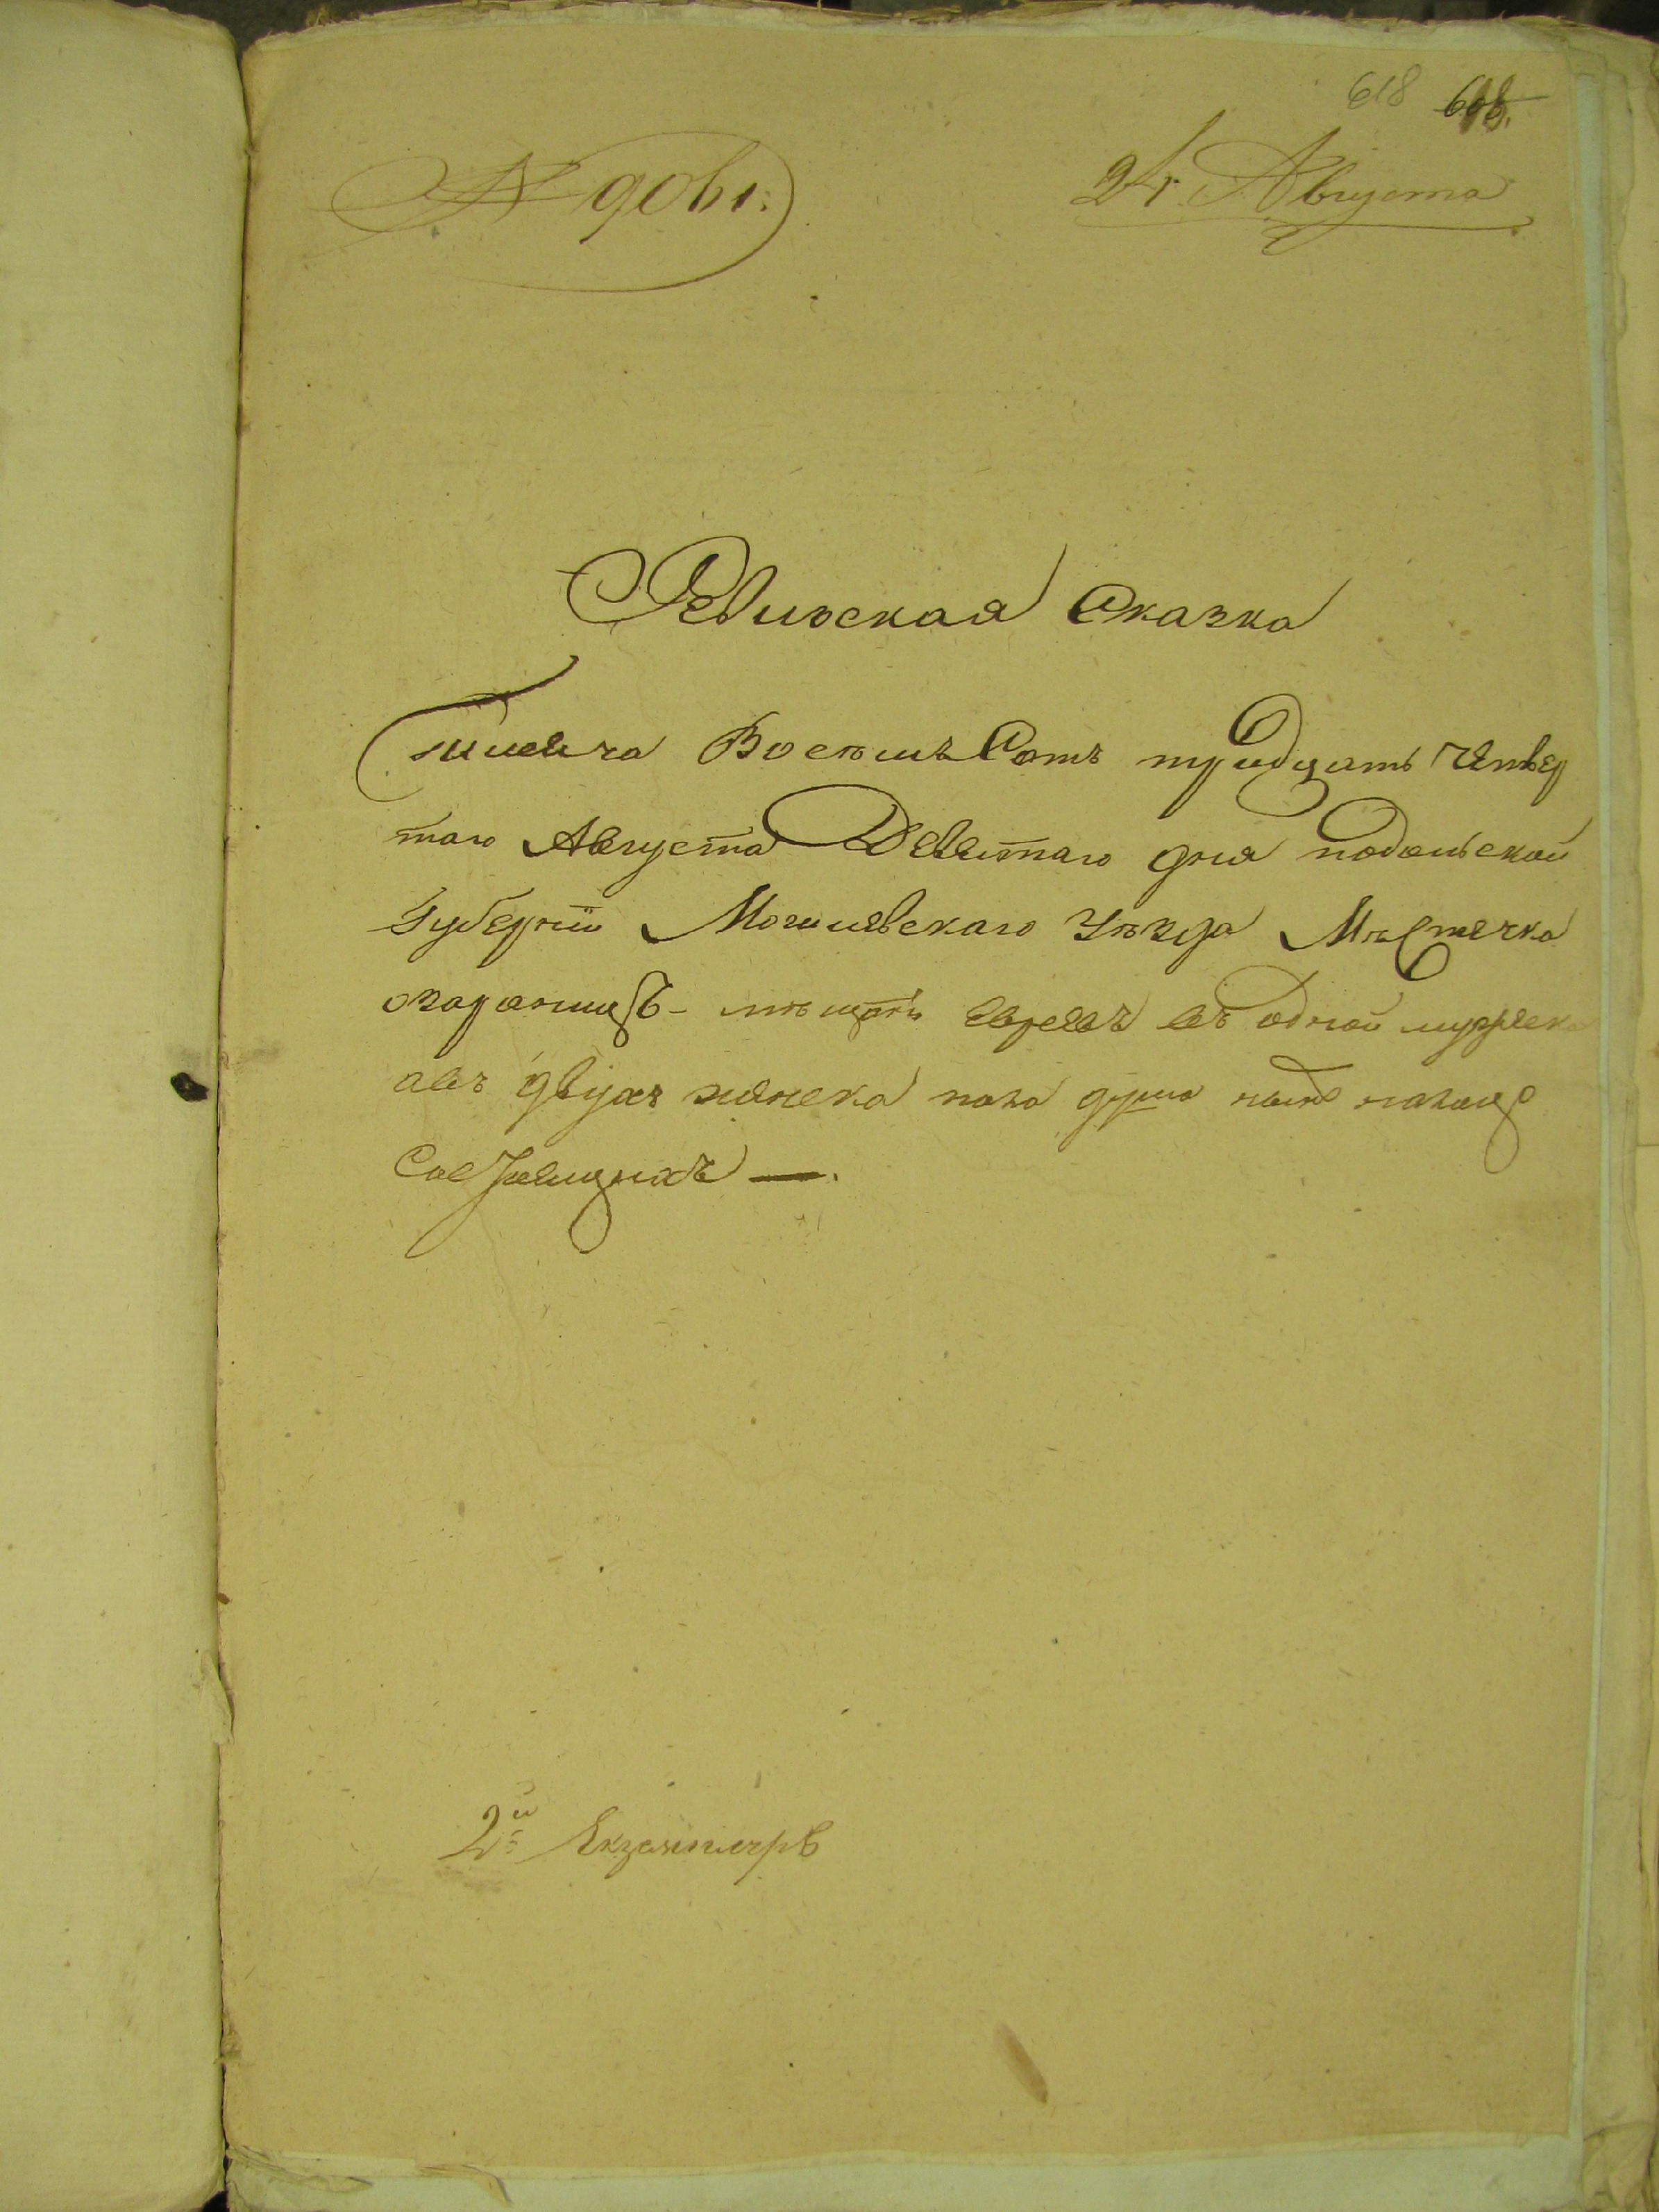 618 608.
№ 9061:
24. Августа
Ревизская Сказка
Тысяча Восемь Сотъ тридцать Четвер
таго Августа Девятаго дня подольской
Губерніи Могилевскаго Уѣзда Мѣстечка
озаринецъ - мѣщанъ Евреевъ въ одной мужеска
авъ двухъ женска пола душа ныне налицо
Состоящихъ —.
2й Екземпляръ